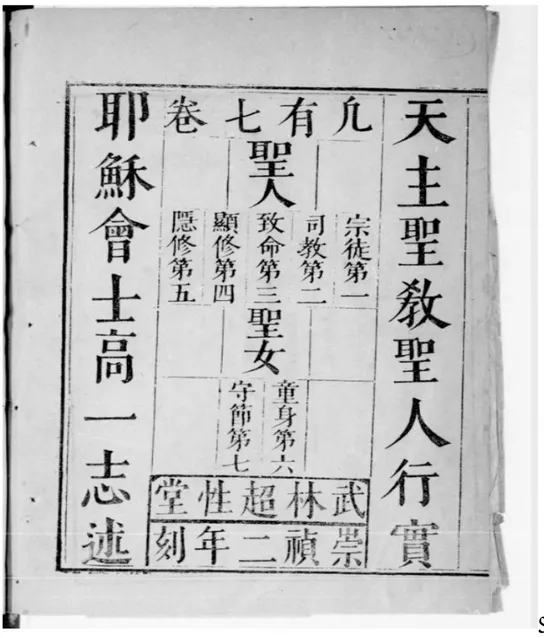 天主聖教聖人行實
凡有七卷
聖人
宗徒第一
司教第二
致命第三
顯修第四
隱修第五
聖女
童身第六
守節第七
武林超性堂
崇禎二年刻
耶穌會士高一志述
S